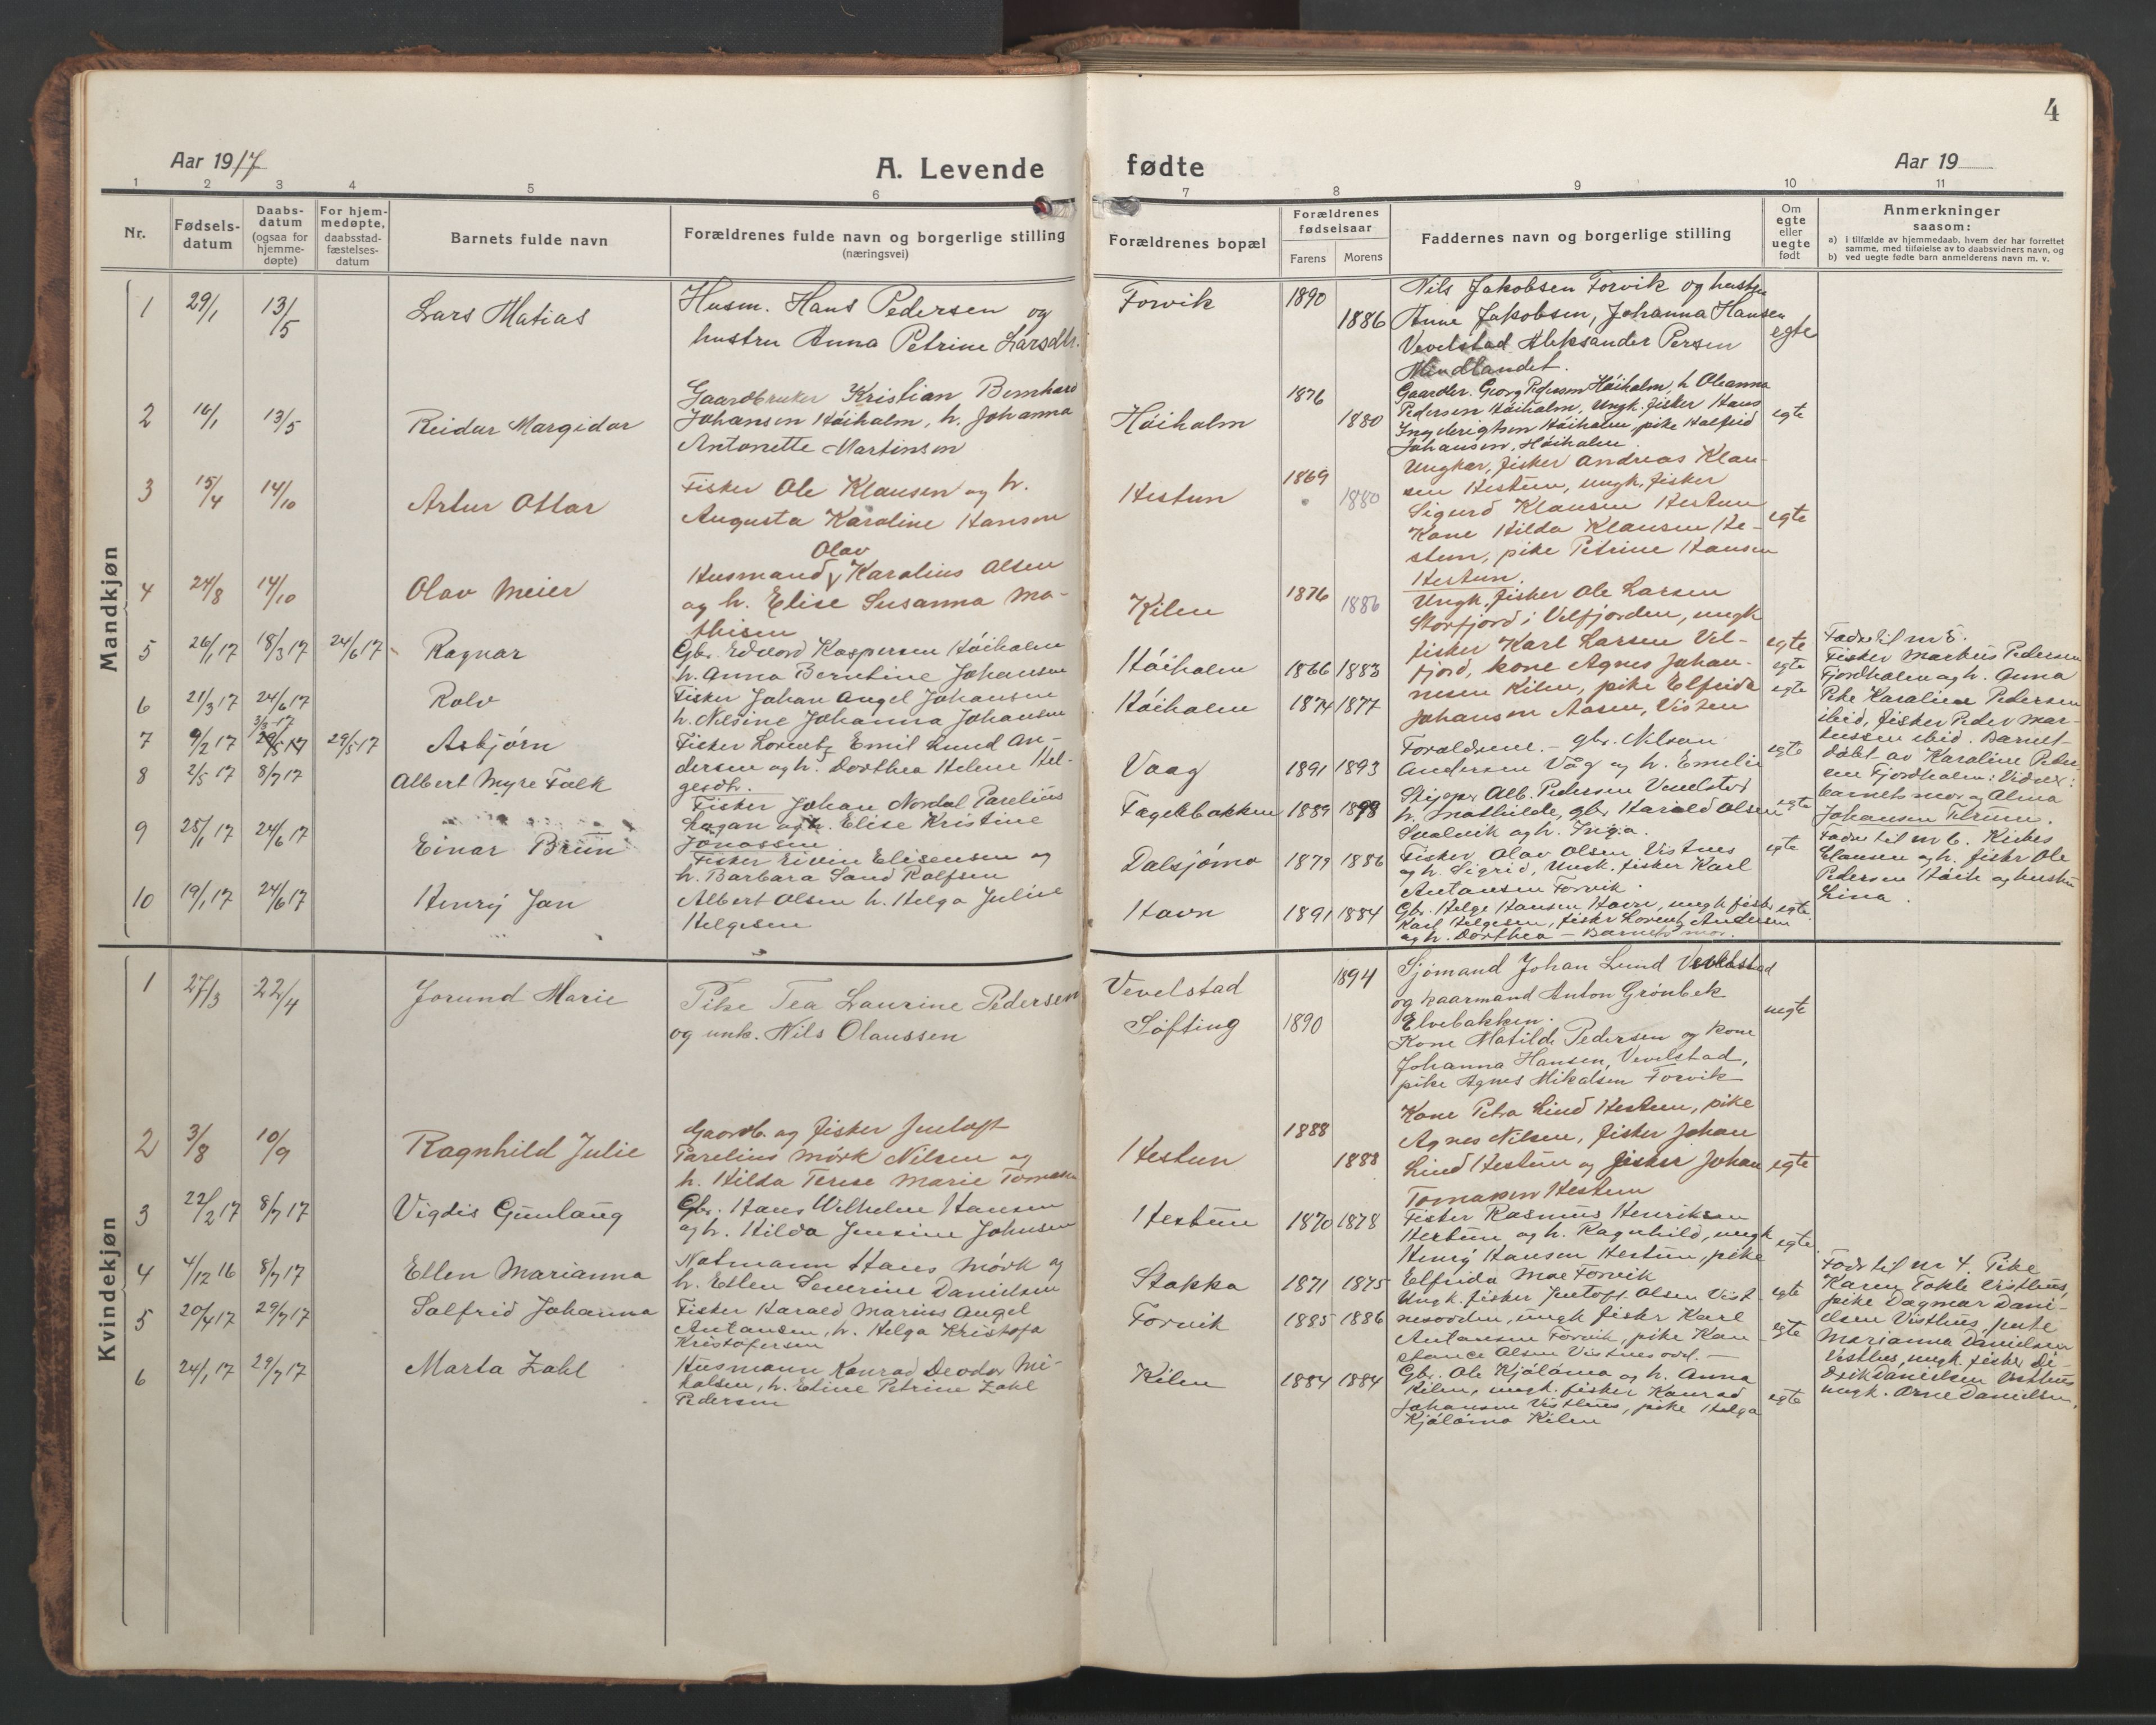 4
Aar 1917
A. Levende
fødte
Aar 19
1 2 3 4 5 6 7 8 9 10 11
Nr.
Fødsels-
datum
Daabs-
datum
(ogsaa for
hjemme-
døpte)
For hjem-
medøpte,
daabsstad-
fæstelses-
datum
Barnets fulde navn
Forældrenes fulde navn og borgerlige stilling
(næringsvei)
Forældrenes bopæl
Forældrenes
fødselsaar
Farens
Morens
Faddernes navn og borgerlige stilling
Om
egte
eller
uegte
født
Anmerkninger
saasom:
a) i tilfælde av hjemmedaab, hvem der har forrettet
samme, med tilføielse av to daabsvidners navn, og
b) ved uegte fødte barn anmelderens navn m. v.
Mandkjøn
1 29/1 13/5 Lars Matias
Husm. Hans Pedersen og
hustru Anna Petrine Larsdtr.
Forvik 1890 1886
Nils Jakobsen Forvik og hustru
Anne Jakobsen, Johanna Hansen
Vevelstad Aleksander Persen
Mindlandet.
egte
2 16/1 13/5 Reidar Margido
Gaardbruker Kristian Bernhard
Johansen Høiholm, h. Johanna
Antonette Martinsen
Høiholm 1876 1880
Gaardbr. Georg Pedersen Høiholm, h Oleanna
Pedersen Høiholm, Ungk. fisker Hans
Ingebrigtsen Høiholm, pike Halfrid
Johansen, Høiholm.
egte
3 15/4 14/10 Artur Ottar
Fisker Ole Klausen og h.
Augusta Karoline Hansen
Hestun 1869 1880
Ungkar, fisker Andreas Klau-
sen Hestun, ungk. fisker
Sigurd Klausen Hestun
Kone Hilda Klausen He-
stun, pike Petrine Hansen
Hestun.
egte
4 24/8 14/10 Olav Meier
Olav
Husmand Karolius Olsen
og h. Elise Susanna Ma-
thisen
Kilen 1876 1886
Ungk. fisker Ole Larsen
Storfjord i Velfjorden, ungk
fisker Karl Larsen Vel-
fjord, kone Agnes Johan-
nesen Kilen, pike Elfrida
Johansen Aasen, Visten
egte
5 26/1 17 18/3 17 24/6 17 Ragnar
Gbr. Edvard Kaspersen Høiholm
h. Anna Berntine Johansen
Høiholm 1866 1883
egte
Fadre til nr 5.
Fisker Markus Pedersen
Fjordholm og h. Anna
Pike Karoline Pedersen
ibid, fisker Peder Mar-
kussen ibid. Barnet
døbt av Karoline Peder-
sen Fjordholm: Vidner:
barnets mor og Alma
Johansen Tilrum.
6 21/3 17 24/6 17 Rolv
Fisker Johan Angel Johansen
h. Nilsine Johanna Johansen
Høiholm 1874 1877
egte
Fadre til nr 6. Kirkes
Clausen og h. fisker Ole
Pedersen Høih og hustru
Lina.
7 9/2 17 3/3 17 29/5 17 29/5 17 Asbjørn
Fisker Lorentz Emil Lund An-
dersen og h. Dorthea Helene Hel-
gesdtr.
Vaag 1891 1893
Forældrene. - gbr. Nilsen
Andersen Våg og h. Emelie
egte
8 2/5 17 8/7 17 Albert Myre Falk
Fisker Johan Nordal Parelius
Lagan og h. Elise Kristine
Jonassen
Fagerbakken 1889 1898
Skipper Alb. Pedersen Vevelstad
h. Mathilde, gbr. Harald Olsen
og h. Inga.
egte
9 25/1 17 24/6 17 Einar Brun
Fisker Eivin Elisensen og
h. Barbara Sand Rolfsen
Dalsjømo 1879 1886
Fisker Olav Olsen Vistnes
og h. Sigrid, Ungk. fisker Karl
Antonsen Forvik.
egte
10 19/1 17 24/6 17 Henrij Jan
Albert Olsen h. Helga Julie
Helgesen
Havn 1891 1884
Gbr. Helge Hansen Havn, ungk fisker
Karl Helgesen, fisker Lorentz Andersen
og h. Dorthea - Barnets mor.
egte
Kvindekjøn
1 27/3 22/4 Jorund Marie
Pike Tea Laurine Pedersen
og unk. Nils Olaussen
Vevelstad 1894
Søfting 1890
Sjømand Johan Lund Vevelstad
og kaarmand Anton Grønbek
Elvebakken.
Kone Matilde Pedersen og kone
Johanna Hansen, Vevelstad,
pike Agnes Mikalsen Forvik
uegte
2 3/8 10/9 Ragnhild Julie
Gaardb. og fisker Jentoft
Parelius Mørk Nilsen og
h. Hilda Terese Marie Tomasen
Hestun 1888 1888
Kone Petra Lind Hestun, pike
Agnes Nilsen, fisker Johan
Lind Hestun og fisker Johan
Tomasen Hestun
egte
3 22/2 17 8/7 17 Vigdis Gunlaug
Gbr. Hans Wilhelm Hansen
og h. Hilda Jensine Johnsen
Hestun 1870 1878
Fisker Rasmus Henriksen
Hestun og h. Ragnhild, ungk
Henry Hansen Hestun, pike
Elfrida Moe Forvik
egte
4 4/12 16 8/7 17 Ellen Marianna
Notmann Hans Mørk og
h. Ellen Severine Danielsen
Stokka 1871 1875
egte
Fadr til nr 4. Pike
Karen Tokle Visthus,
pike Dagmar Dani-
elsen Visthus, jente
Marianna Danielsen
Visthus, ungk. fisker Di-
drik Danielsen Visthus
ungk. Arne Danielsen.
5 20/4 17 29/7 17 Solfrid Johanna
Fisker Harald Marius Angel
Antonsen, h. Helga Kristofa
Kristofersen
Forvik 1885 1886
Ungk. fisker Jentoft Olsen Vist-
nesodden, ungk fisker Karl
Antonsen Forvik, pike Kon-
stance Olsen Vistnesodd. -
egte
6 24/1 17 29/7 17 Marta Zahl
Husmann Konrad Deodor Mi-
kalsen, h. Eline Petrine Zahl
Pedersen
Kilen 1884 1884
Gbr. Ole Kjølåmo og h. Anna
Kilen, ungk. fisker Konrad
Johansen Visthus, pike Helga
Kjølåmo Kilen
egte